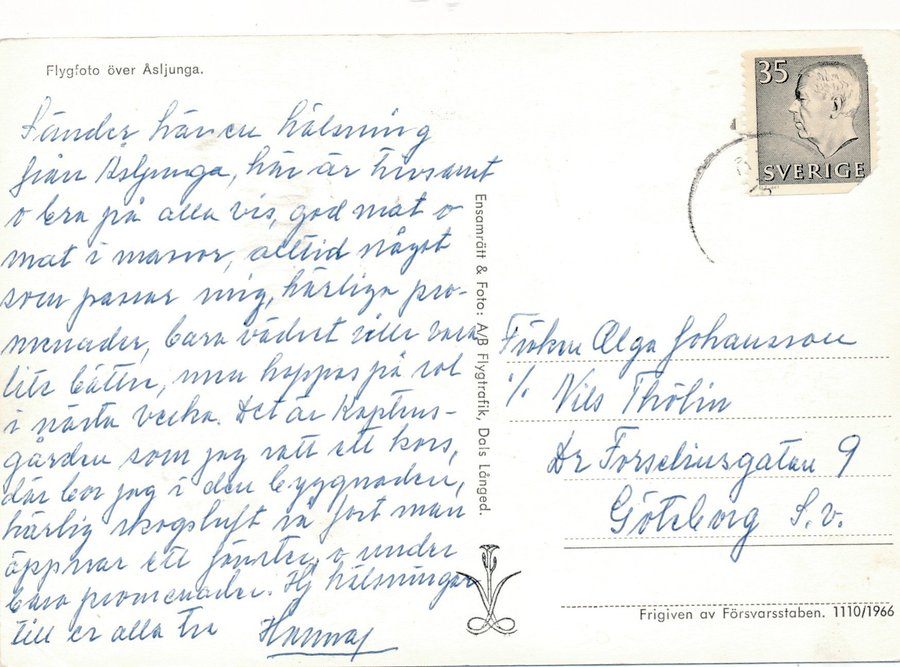 Flygfoto över Åsljunga.
35
SVERIGE
Sänder här en hälsning
från Åsljunga, här är trivsamt
o bra på alla vis, god mat o
mat i massor, alltid något
som passar mig, härliga pro-
menader, bara vädret ville vara
lite bättre, men hoppas på sol
i nästa vecka. Det är
gården som jag satt ett kors,
där bor jag i den byggnaden,
härlig skogsluft så fort man
öppnar ett fönster, o under
bara promenader. Hj hälsningar
till er alla tre Hanna
Ensamrätt & Foto: A/B Flygtrafik, Dals Långed.
Fröken Olga Johansson
% Nils Thölin
Dr Forseliusgatan 9
Göteborg S.v.
Frigiven av Försvarsstaben. 1110/1966